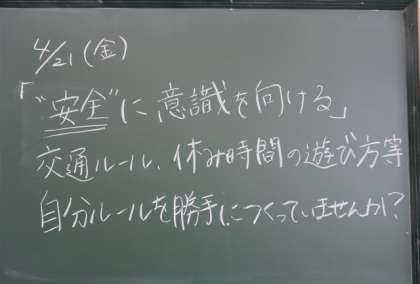 4/21(金)
「“安全”に意識を向ける」
交通ルール、休み時間の遊び方等
自分ルールを勝手につくっていませんか?